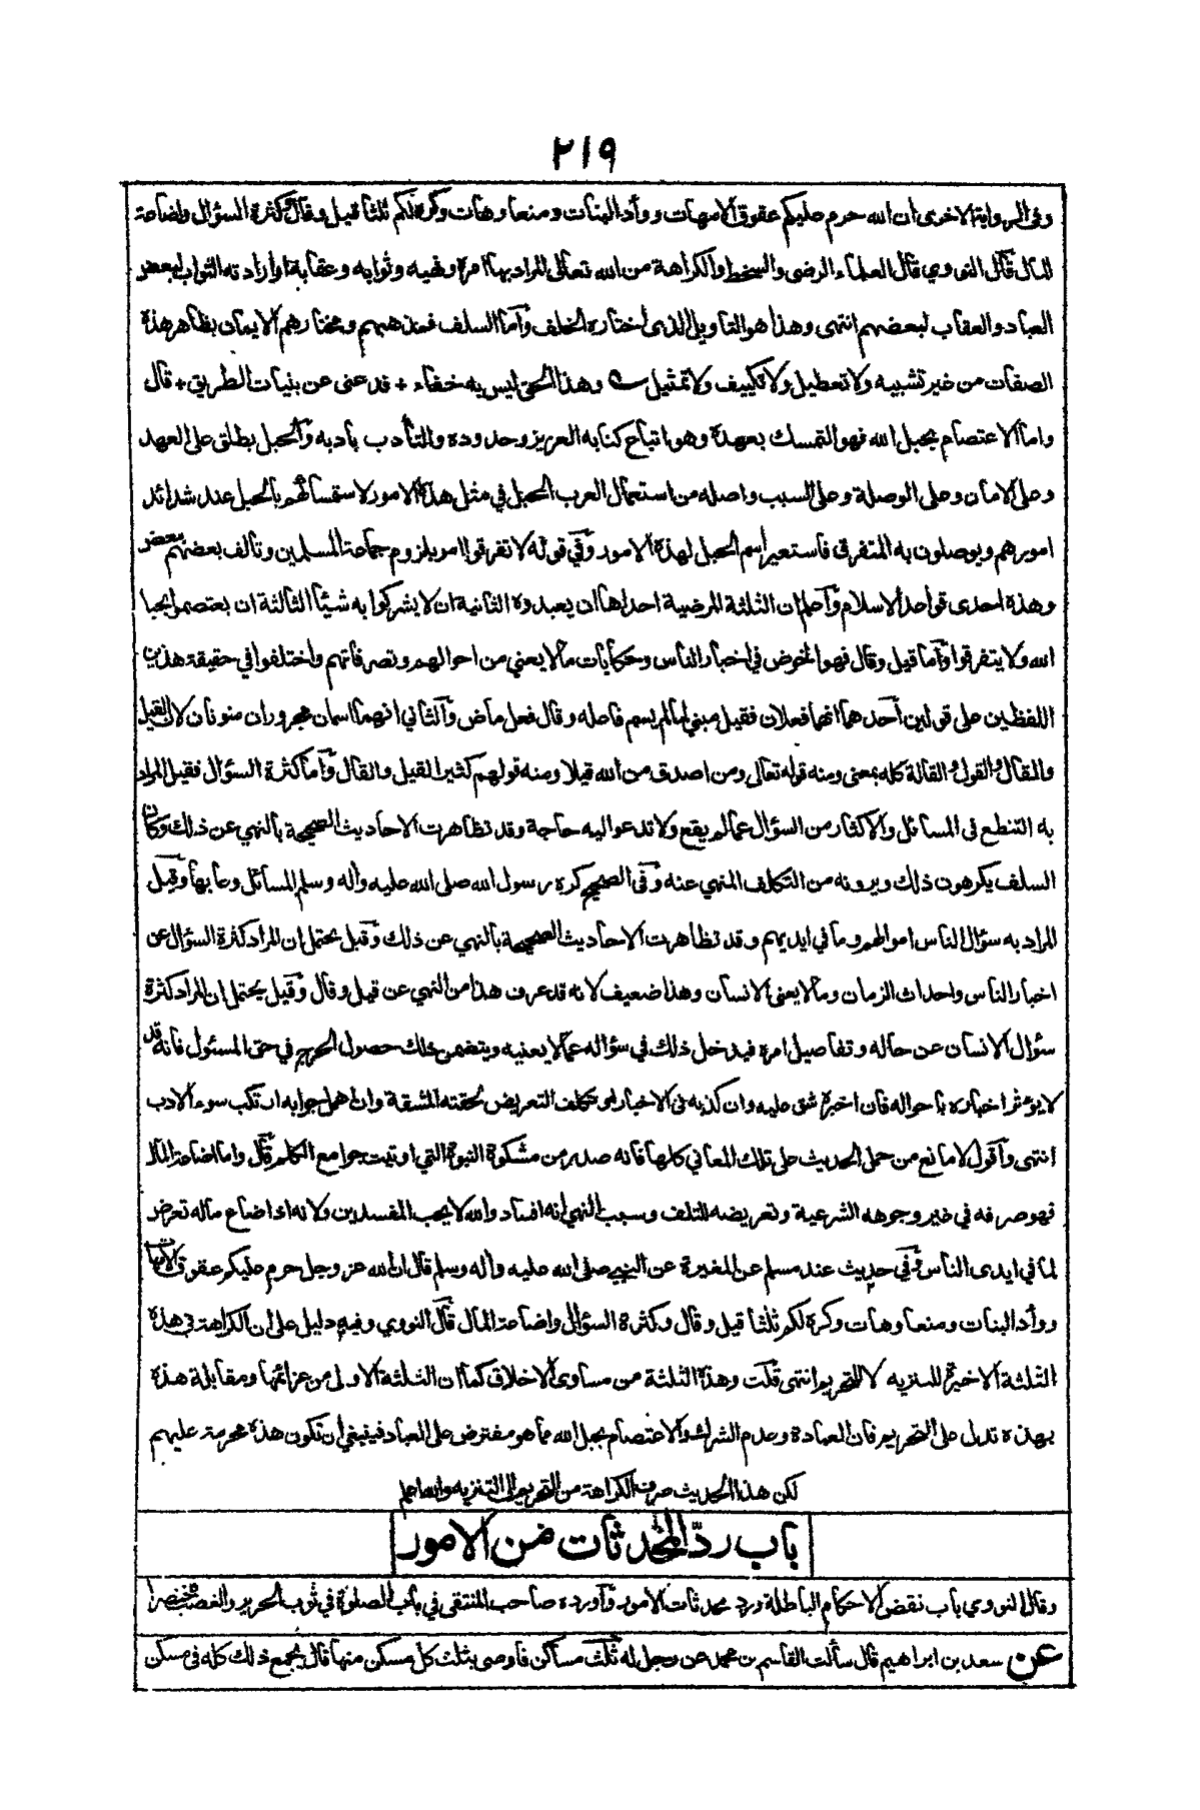 ٢١٩
وفي الرواية الاخرى ان الله حرم عليكم عقوق الامهات ووأد البنات ومنعا وهات وكره لكم ثلثا قيل وقال وكثرة السؤال واضاعة
المال قال النووي قال العلماء الرضى والسخط والكراهة من الله تعالى المراد بها امره ونهيه وثوابه وعقابه او ارادته الثواب لبعض
العباد والعقاب لبعضهم انتهى وهذا هو التاويل الذى اختاره الخلف وأما السلف فمذهبهم ومختارهم الايمان بظاهر هذه
الصفات من غير تشبيه ولا تعطيل ولا تكييف ولا تمثيل وهذا الحق ليس به خفاء + فدعنى عن بنيات الطريق + قال
واما الاعتصام بحبل الله فهو التمسك بعهده وهو اتباع كتابه العزيز وحدوده والتأدب بادبه والحبل يطلق على العهد
وعلى الامان وعلى الوصلة وعلى السبب واصله من استعمال العرب الحبل في مثل هذه الامور لاستمساكهم بالحبل عند شدائد
امورهم ويوصلون به المتفرق فاستعير اسم الحبل لهذه الامور وفي قوله لا تفرقوا امر بلزوم جماعة المسلمين وتالف بعضهم ببعض
وهذه احدى قواعد الاسلام وأعلم ان الثلثة المرضية احداها ان يعبدوه الثانية ان لا يشركوا به شيئا الثالثة ان يعتصموا بحبل
الله ولا يتفرقوا وأما قيل وقال فهو الخوض في اخبار الناس وحكايات ما لا يعني من احوالهم وتصرفاتهم واختلفوا في حقيقة هذين
اللفظين على قولين أحدهما انهما فعلان فقيل مبني لما لم يسم فاعله وقال فعل ماض والثاني انهما اسمان مجروران منونان لان القيل
والقال والقول والقالة كله بمعنى ومنه قوله تعالى ومن اصدق من الله قيلا ومنه قولهم كثير القيل والقال وأما كثرة السؤال فقيل المراد
به التنطع فى المسائل والاكثار من السؤال عما لم يقع ولا تدعو اليه حاجة وقد تظاهرت الاحاديث الصحيحة بالنهي عن ذلك وكان
السلف يكرهون ذلك ويرونه من التكلف المنهي عنه وفى الصحيح كره رسول الله صلى الله عليه وأله وسلم المسائل وعابها وقيل
المراد به سؤال الناس اموالهم وما في ايديهم وقد تظاهرت الاحاديث الصحيحة بالنهي عن ذلك وقيل يحتمل ان المراد كثرة السؤال عن
اخبار الناس واحداث الزمان وما لا يعنى الانسان وهذا ضعيف لانه قد عرف هذا من النهي عن قيل وقال وقيل يحتمل ان المراد كثرة
سؤال الانسان عن حاله وتفاصيل امره فيدخل ذلك في سؤاله عما لا يعنيه ويتضمن ذلك حصول الحرج في حق المسئول فانه قد
لا يؤثر اخباره باحواله فان اخبره شق عليه وان كذبه فى الاخبار او تكلف التعريض لحقته المشقة وان اهمل جوابه ارتكب سوء الادب
انتهى وأقول لا مانع من حمل الحديث على تلك المعاني كلها فانه صدر من مشكوة النبوة التي اوتيت جوامع الكلم قال واما اضاعة المال
فهو صرفه في غير وجوهه الشرعية وتعريضه للتلف وسبب النهي انه افساد والله لا يحب المفسدين ولانه اذا ضاع ماله تعرض
لما في ايدى الناس وفي حديث عند مسلم عن المغيرة عن النبي صلى الله عليه وأله وسلم قال ان الله عز وجل حرم عليكم عقوق الامهات
ووأد البنات ومنعا وهات وكره لكم ثلثا قيل وقال وكثرة السؤال واضاعة المال قال النووي وفيه دليل على أن الكراهة في هذه
الثلثة الاخيرة للتنزيه لا للتحريم انتهى قلت وهذه الثلثة من مساوى الاخلاق كما ان الثلثة الاولى من عزائمها ومقابلة هذه
بهذه تدل على التحريم فان العبادة وعدم الشراك والاعتصام بحبل الله مما هو مفترض على العباد فينبغي ان تكون هذه محرمة عليهم
لكن هذا الحديث صرف الكراهة من التحريم الى التنزيه والله اعلم
باب ردّ المحدثات من الامور
وقال النووي باب نقض الاحكام الباطلة ورد محدثات الامور وأورده صاحب المنتقى في باب الصلوة في ثوب الحرير والغصب مختصرا
عن سعد بن ابراهيم قال سألت القاسم بن محمد عن رجل له ثلث مساكن فاوصى بثلث كل مسكن منها قال يجمع ذلك كله فى مسكن